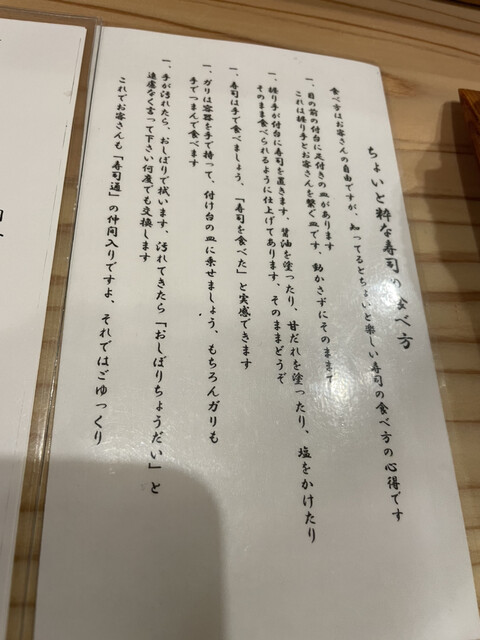 ちょいと粋な寿司の食べ方
食べ方はお客さんの自由ですが、知ってるとちょいと楽しい寿司の食べ方の心得です
一、目の前の付台に足付きの皿があります
これは握り手とお客さんを繋ぐ皿です、動かさずにそのままで
一、握り手が付台に寿司を置きます、醤油を塗ったり、甘だれを塗ったり、塩をかけたり
そのまま食べられるように仕上げてあります、そのままどうぞ
一、寿司は手で食べましょう、「寿司を食べた」と実感できます
一、ガリは容器を手で持って、付け台の皿に乗せましょう、もちろんガリも
手でつまんで食べます
一、手が汚れたら、おしぼりで拭います、汚れてきたら「おしぼりちょうだい」と
遠慮なく言って下さい何度でも交換します
これでお客さんも「寿司通」の仲間入りですよ、それではごゆっくり